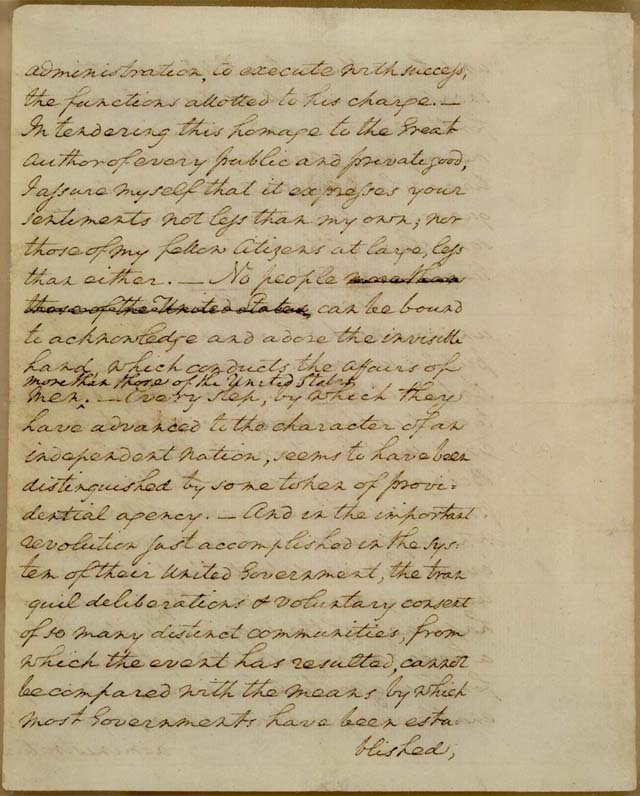 administration, to execute with success,
the functions allotted to his charge. —
In tendering this homage to the Great
Author of every public and private good,
I assure myself that it expresses your
sentiments not less than my own; nor
those of my fellow Citizens at large, less
than either. — No people more than
those of the United States, can be bound
to acknowledge and adore the invisible
hand, which conducts the affairs of
more than those of the United States
men. — Every step, by which they
have advanced to the character of an
independent nation, seems to have been
distinguished by some token of provi-
dential agency. — And in the important
revolution just accomplished in the sys-
tem of their United Government, the tran
quil deliberations & voluntary consent
of so many distinct communities, from
which the event has resulted, cannot
be compared with the means by which
most Governments have been esta-
blished,